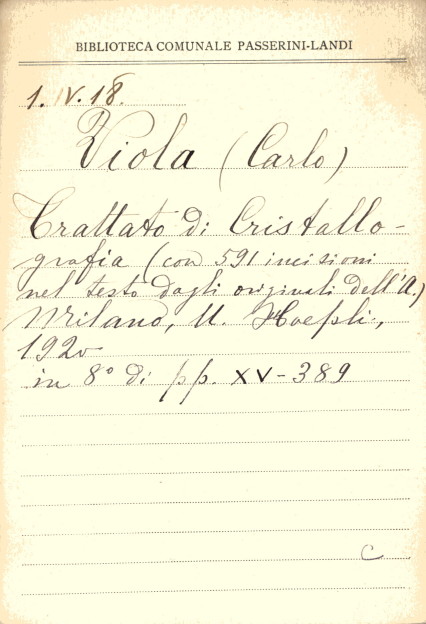 BIBLIOTECA COMUNALE PASSERINI-LANDI
1. IV. 18.
Viola (Carlo)
Trattato di Cristallo-
grafia (con 591 incisioni
nel testo dagli originali dell'A.)
Milano, U. Hoepli,
1920
in 8° di pp. XV-389
C